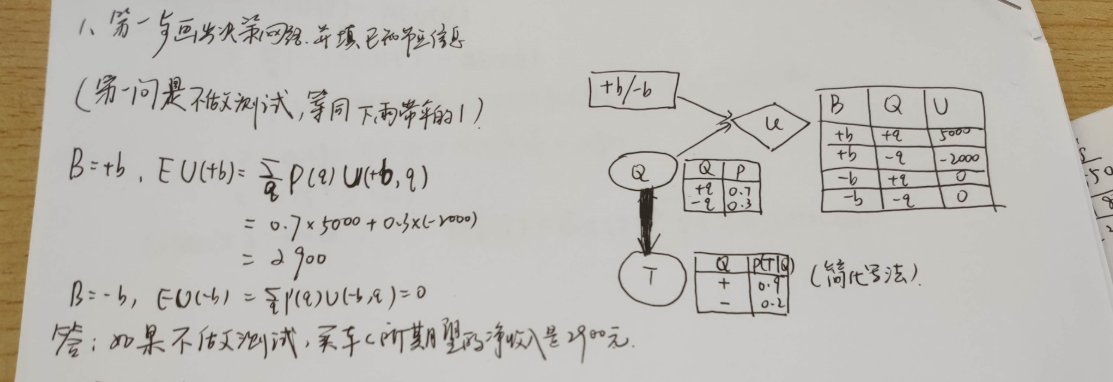 1、第一步画出决策网络.并填已知节点信息
(第一问是不做测试,等同下雨带伞的1)
B=+b, EU(+b)=∑q P(q)U(+b,q)
=0.7×5000+0.3×(-2000)
=2900
B=-b, EU(-b)=∑q P(q)U(-b,q)=0
答:如果不做测试,买车C所期望的净收入是2900元.
+b/-b
U
B Q U
+b +q 5000
+b -q -2000
-b +q 0
-b -q 0
Q
Q P
+q 0.7
-q 0.3
T
Q P(T|Q)
+ 0.9
- 0.2
(简化写法)
50